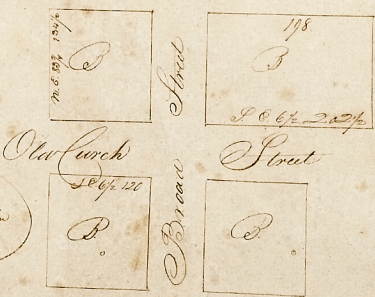 N E 83½ 134½
B
Street
198.
B
S E 6½ 202½
Old Curch
Street
S E 6½ 120
B.
Broad
B.